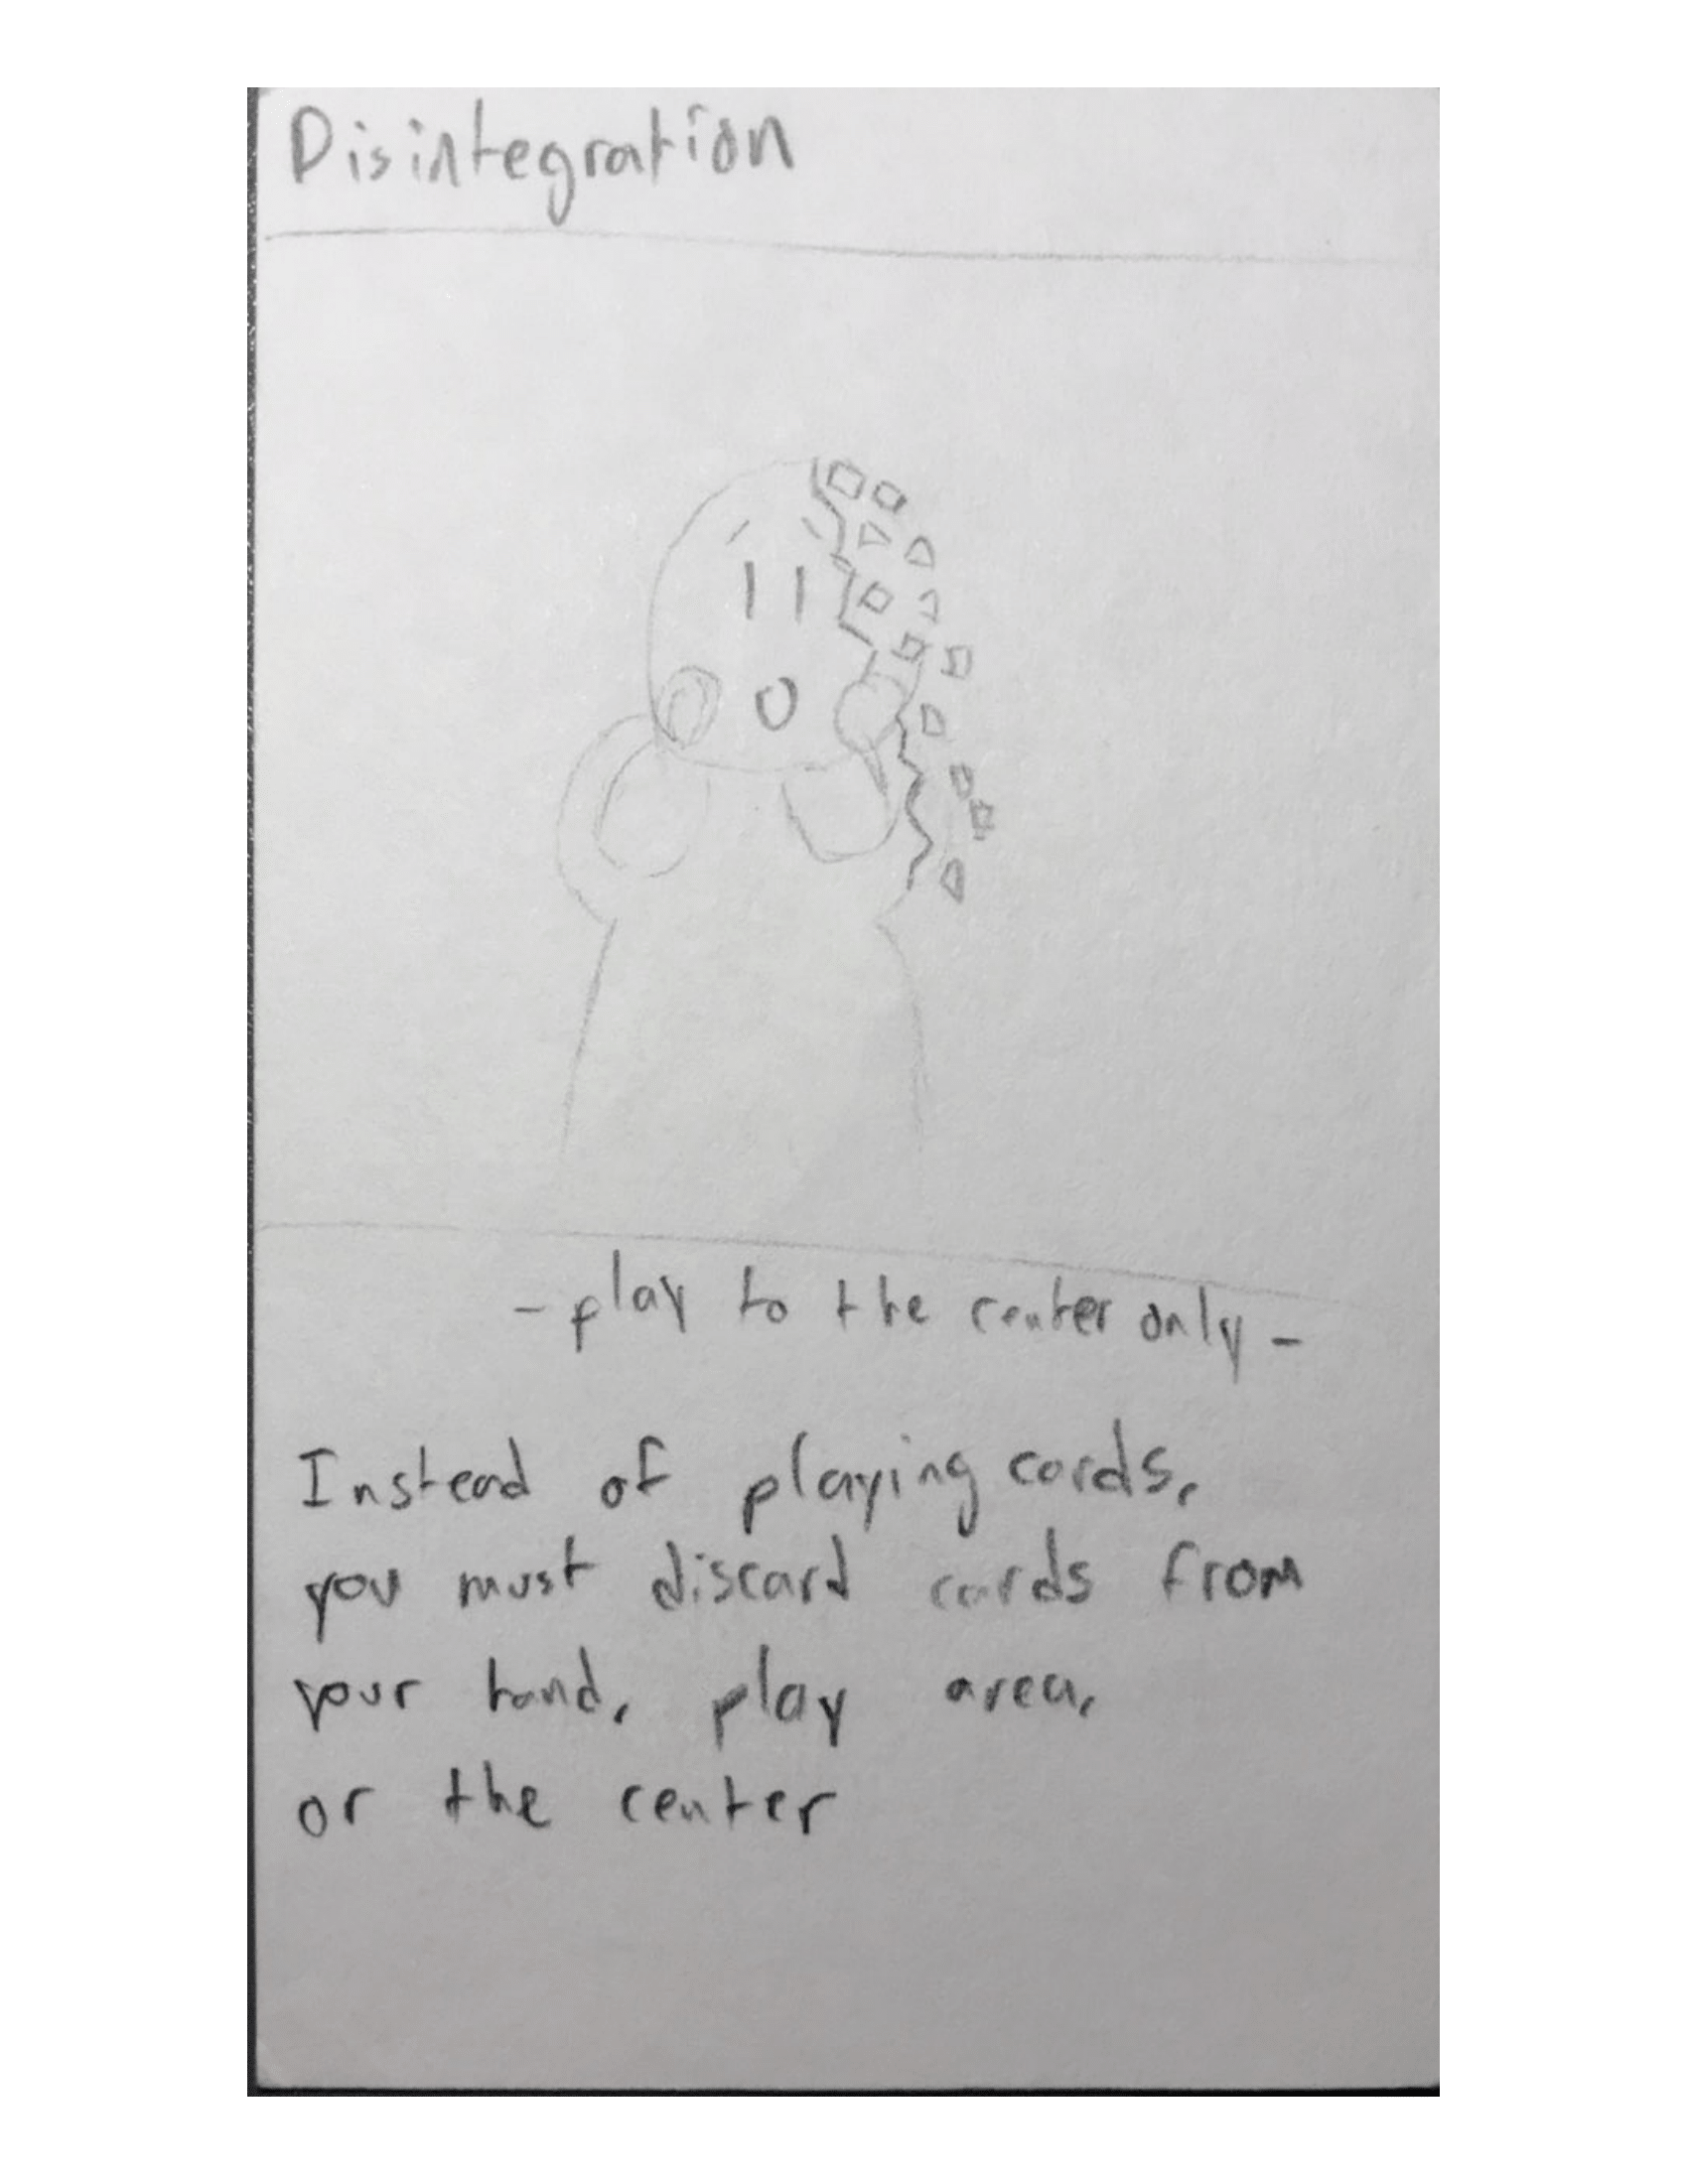 Disintegration
- play to the center only -
Instead of playing cards,
you must discard cards from
your hand, play area,
or the center